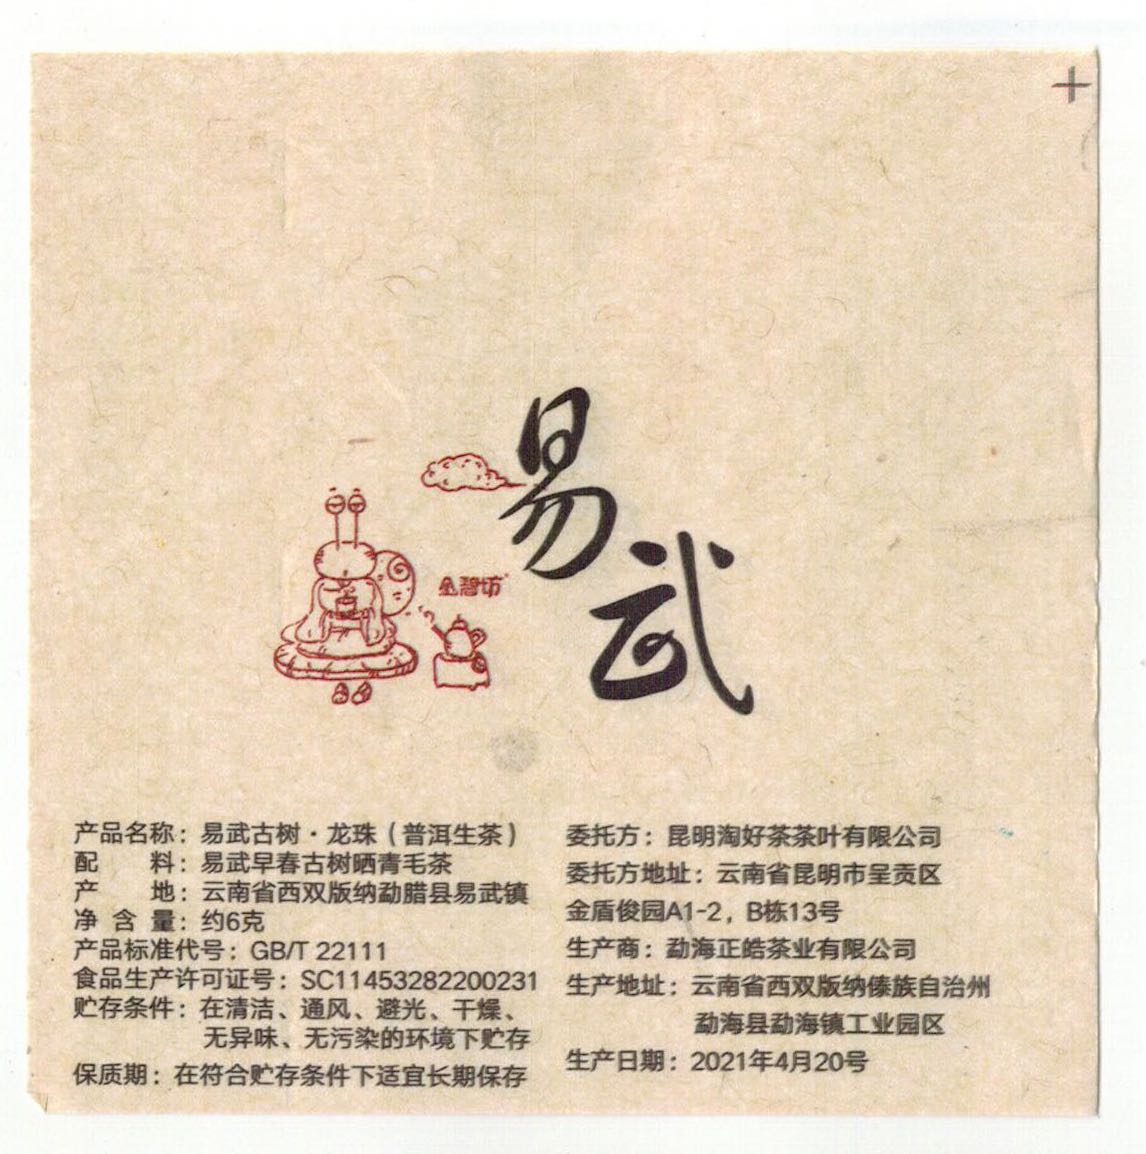 易武
金碧坊
产品名称：易武古树·龙珠（普洱生茶）
配　　料：易武早春古树晒青毛茶
产　　地：云南省西双版纳勐腊县易武镇
净 含 量：约6克
产品标准代号：GB/T 22111
食品生产许可证号：SC11453282200231
贮存条件：在清洁、通风、避光、干燥、
无异味、无污染的环境下贮存
保质期：在符合贮存条件下适宜长期保存
委托方：昆明淘好茶茶叶有限公司
委托方地址：云南省昆明市呈贡区
金盾俊园A1-2，B栋13号
生产商：勐海正皓茶业有限公司
生产地址：云南省西双版纳傣族自治州
勐海县勐海镇工业园区
生产日期：2021年4月20号